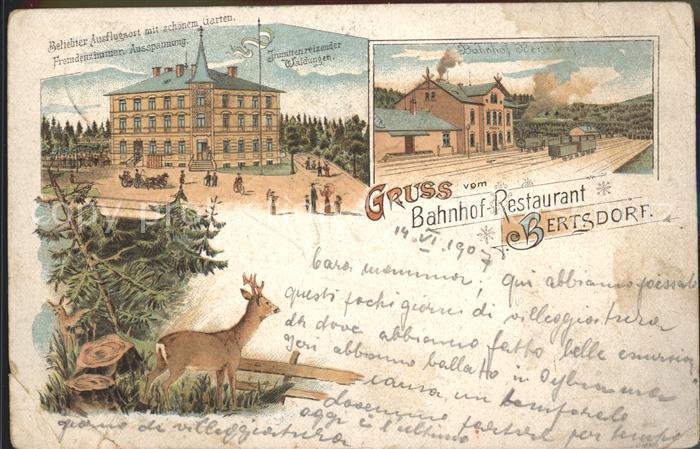 Beliebter Ausflugsort mit schönem Garten.
Fremdenzimmer. Ausspannung.
Inmitten reizender
Waldungen.
Bahnhof Bertsdorf
GRUSS vom
Bahnhof-Restaurant
BERTSDORF.
14. VI. 1907
Cara mamma, qui abbiamo passato
questi pochi giorni di villeggiatura
da dove abbiamo fatto belle escursioni
Ieri abbiamo ballato in Oybin ma
causa un temporale
dovemmo partire per tempo
oggi è l'ultimo
giorno di villeggiatura